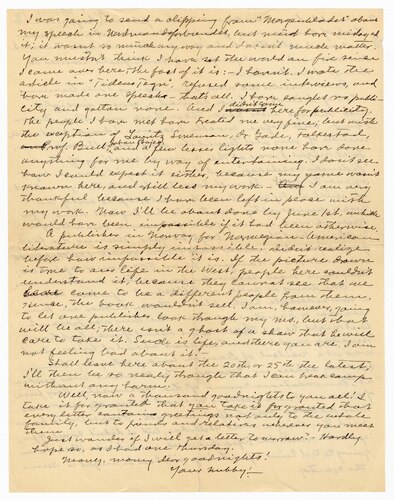 I was going to send a clipping from "Morgenbladet" about
my speech in Nordmandsforbundet, but must have mislayed
it; it wasn't so much any way and doesn't much matter.
You mustn't think I have set the world on fire since
I came over here; the fact of it is: – I haven't. I wrote the
article in "Tidens Tegn", refused some interviews, and
have made one speech – thats all. I have sought no publi-
city and gotten none. (And I didn't come here for publicity)
the people I have met have treated me very fine, but with
the exception of Lauritz Swenson, Or Gade, Falkestad,
Prof. Bull, and a few lesser lights none have done
anything for me by way of entertaining. I don't see
how I could expect it either, because my name wasn't
known here, and still less my work. I am very
thankful because I have been left in peace with
my work. Now I'll be about done by June 1st, which
would have been impossible if it had been otherwise.
A publisher in Norway for Norwegian American
literature is simply impossible. didn't realize
before how impossible it is. If the picture drawn
is true to our life in the West, people here couldn't
understand it, because they cannot see that we
came to be a different people from them,
ergo, the book wouldn't sell. I am, however, going
to let one publisher look through my ms, but that
will be all; there isn't a ghost of a show that he will
care to take it. Such is life, and there you are. I am
not feeling bad about it!
Shall leave here about the 20th or 25th the latest;
I'll then be so nearly through that I can break camp
without any harm.
Well now a thousand goodnights to you all! I
take it for granted that you take it for granted that
every letter contains greetings not only to the whole
family, but to friends and relatives wherever you meet
them
Just wonder if I will get a letter to-morrow – Hardly
hope so, as I had one Thursday.
Many, many dear goodnights!
Your hubby!